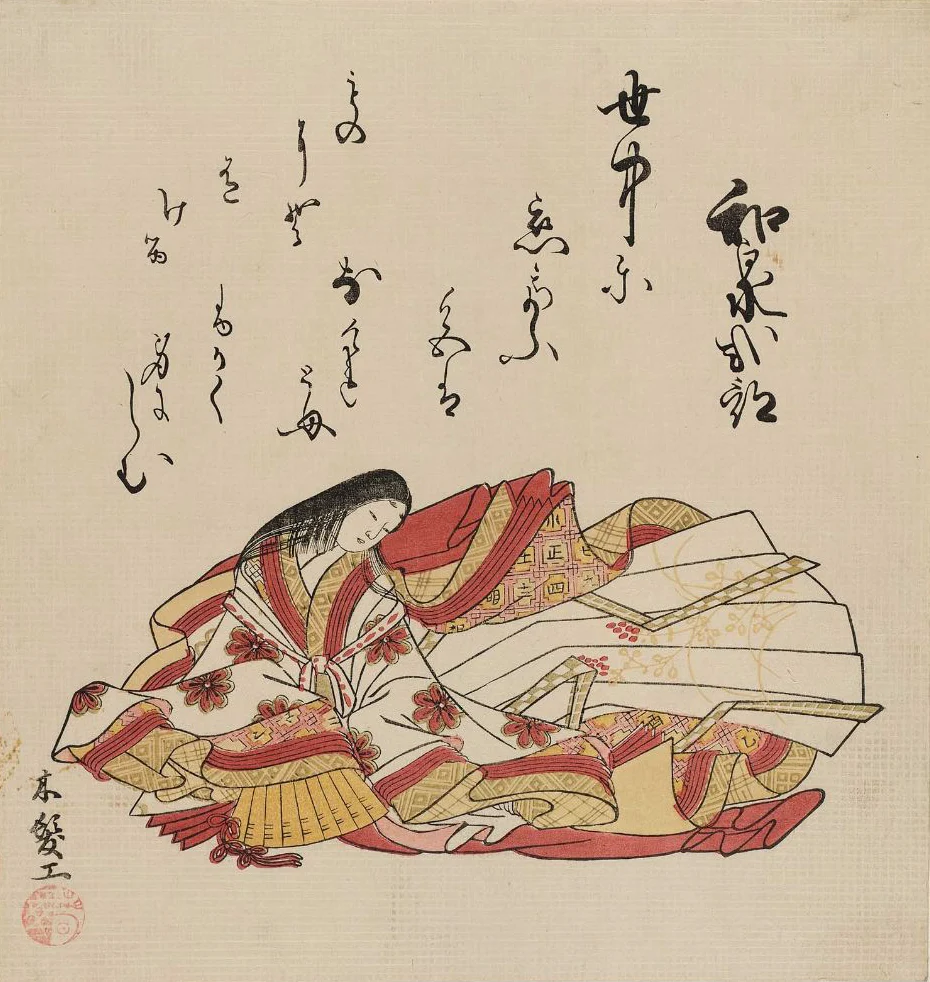 和泉式部
世中尓
恋てふ
色は
なけれ
とも
ふかく
身に
しむ
もの
にそ
あり
ける
木髪工